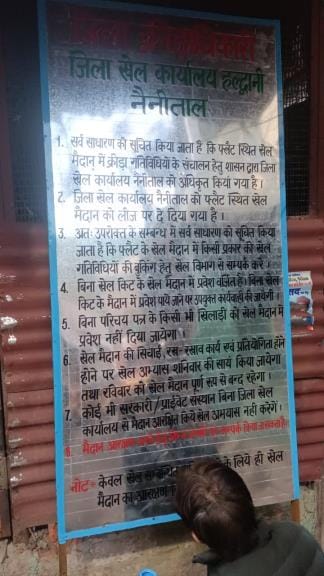 जिला क्रीडाधिकारी
जिला खेल कार्यालय हल्द्वानी
नैनीताल
1. सर्व साधारण को सूचित किया जाता है कि फ्लैट स्थित खेल
मैदान में क्रीड़ा गतिविधियों के संचालन हेतु शासन द्वारा जिला
खेल कार्यालय नैनीताल को अधिकृत किया गया है।
2. जिला खेल कार्यालय नैनीताल को फ्लैट स्थित खेल
मैदान को लीज पर दे दिया गया है।
3. अतः उपरोक्त के सम्बन्ध में सर्व साधारण को सूचित किया
जाता है कि फ्लैट के खेल मैदान में किसी प्रकार की खेल
गतिविधियों की बुकिंग हेतु खेल विभाग से सम्पर्क करें।
4. बिना खेल किट के खेल मैदान में प्रवेश वर्जित है। बिना खेल
किट के मैदान में प्रवेश पाये जाने पर उपयुक्त कार्यवाही की जायेगी।
5. बिना परिचय पत्र के किसी भी खिलाड़ी को खेल मैदान में
प्रवेश नहीं दिया जायेगा।
6. खेल मैदान की सिंचाई, रख-रखाव कार्य एवं प्रतियोगिता होने
होने पर खेल अभ्यास शनिवार को सायं किया जायेगा
तथा रविवार को खेल मैदान पूर्ण रूप से बन्द रहेगा।
7. कोई भी सरकारी/प्राईवेट संस्थान बिना जिला खेल
कार्यालय से मैदान आरक्षित किये खेल अभ्यास नहीं करेगें।
8. मैदान आरक्षण सम्पर्क किया जा सकता है।
नोट- केवल खेल के लिये ही खेल
मैदान का आरक्षण